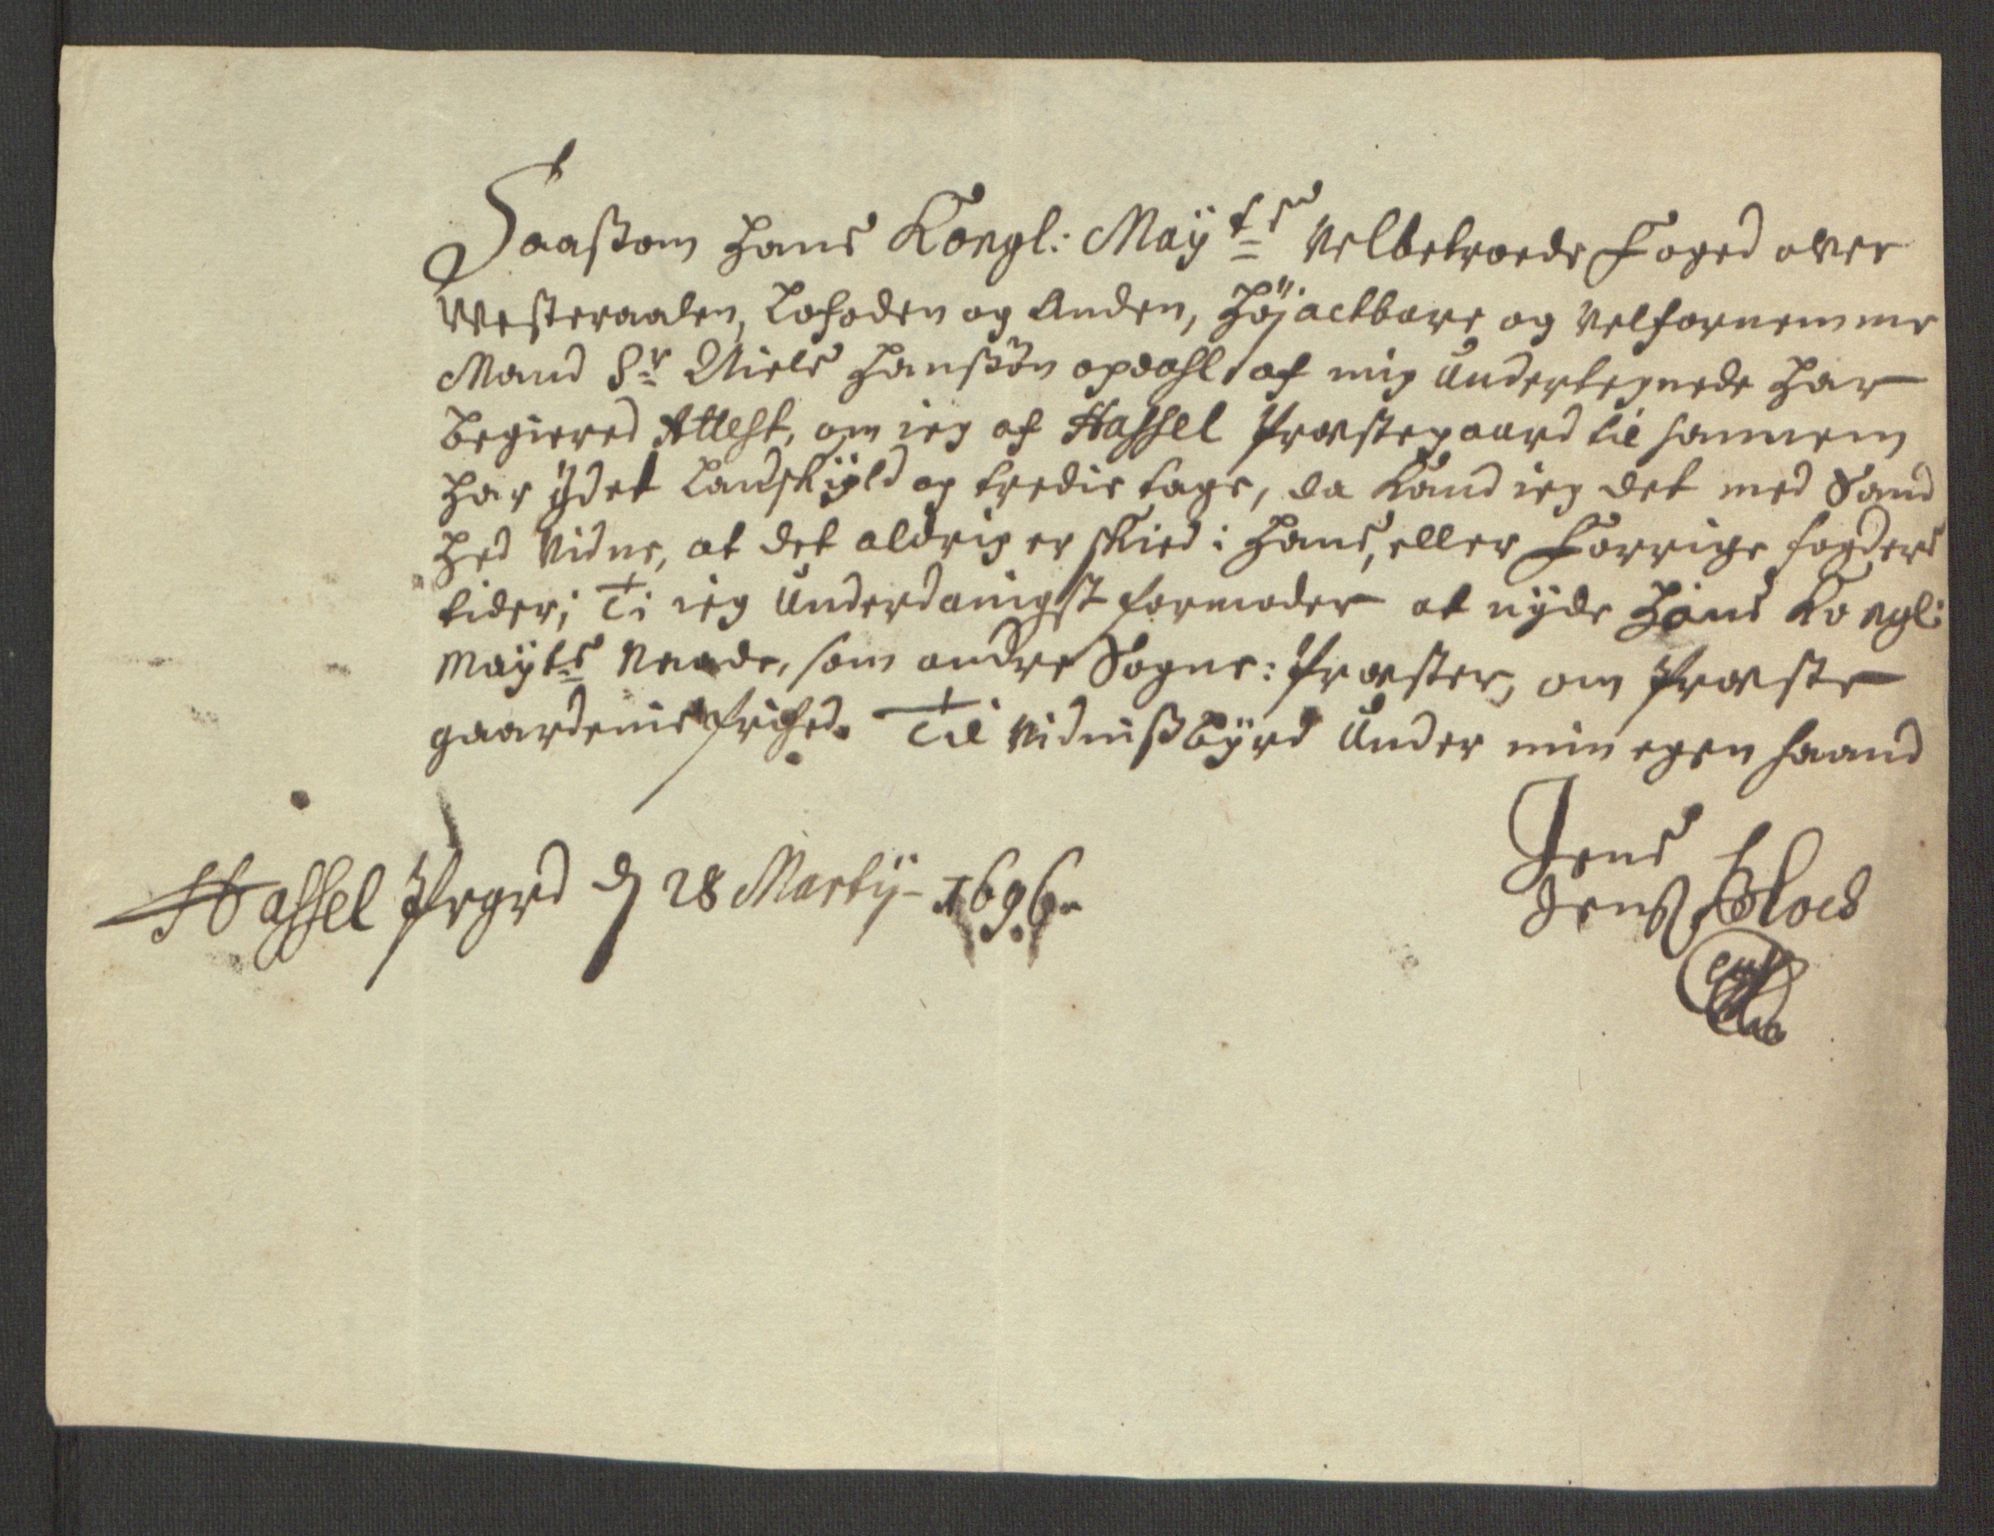 Saasom hans Kongl: Maÿts velbetroede Foged over
Westeraalen, Lofoden og Anden, Höjactbare og velfornemme
Mand Sr Niels Hansßön opdahl af mig Undertegnede har
begiered Attest, om ieg af Hassel Præstegaard til hannem
har ÿdet Landskÿld og tredie tage, da kand ieg det med Sand
hed vidne, at det aldrig er skied i hans, eller Forrige fogders
tider; Ti ieg Underdanigst formoder at nÿde Hans Kongl:
Maÿts Naade, som andre Sogne: Præster, om Præste
gaardenis frihed. Til vidnißbÿrd Under min egen haand
Hassel Prgrd d 28 Martÿ 1696
Jens
Jenß Bloch